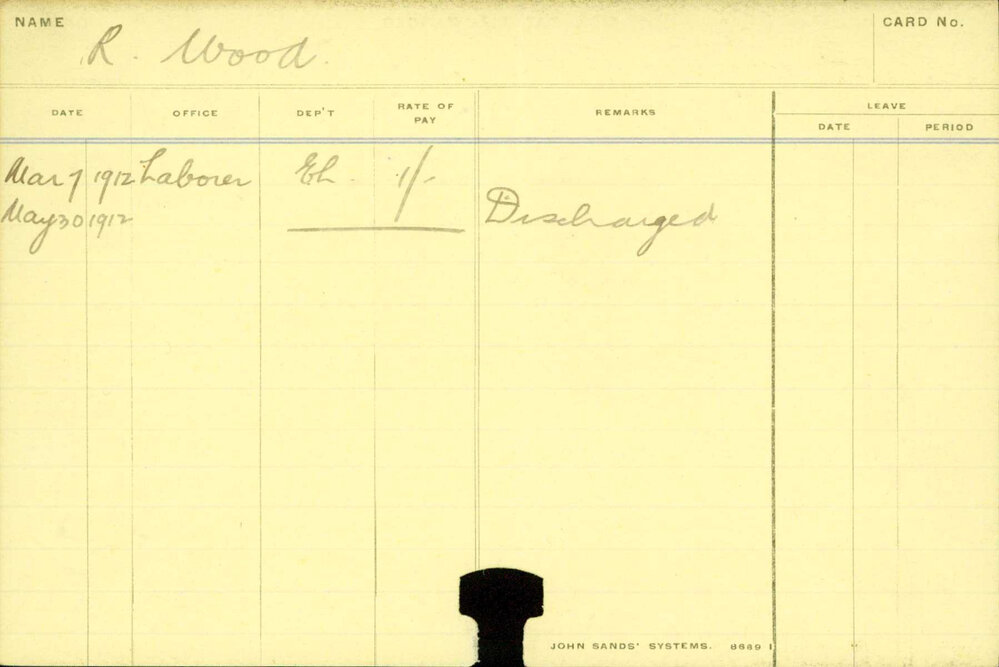 NAME R. Wood. CARD No.
DATE OFFICE DEP'T RATE OF PAY REMARKS LEAVE
DATE PERIOD
Mar 7 1912 Laborer 1/-
May 30 1912 Discharged
JOHN SANDS' SYSTEMS. 8689